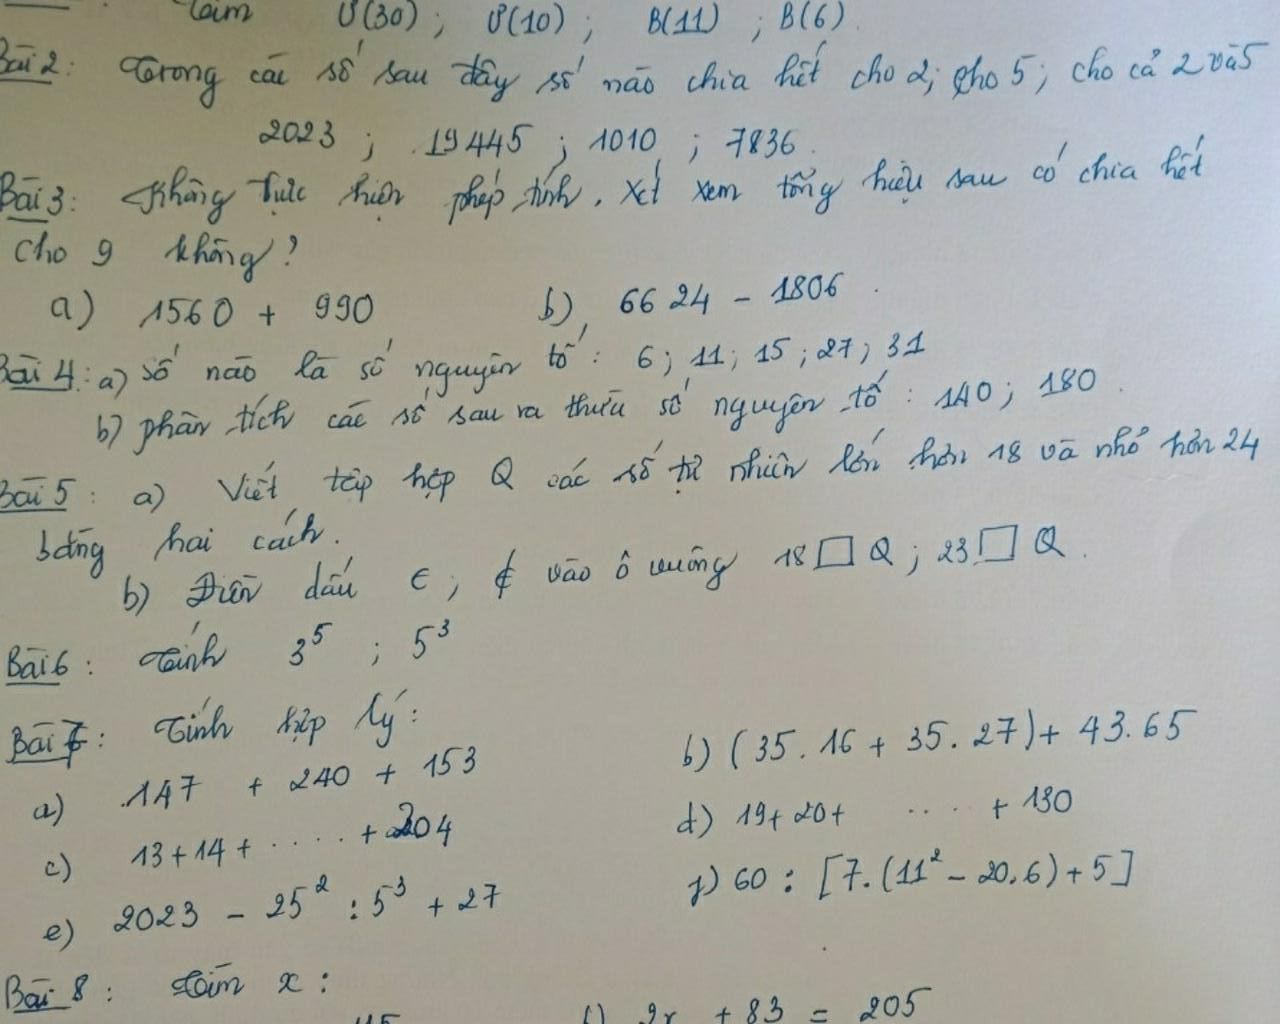 Tìm Ư(30); Ư(10); B(11); B(6)
Bài 2: Trong các số sau đây số nào chia hết cho 2; cho 5; cho cả 2 và 5
2023; 19445; 1010; 7836
Bài 3: Không thực hiện phép tính. Xét xem tổng hiệu sau có chia hết
cho 9 không?
a) 1560 + 990 b) 6624 - 1806
Bài 4: a) số nào là số nguyên tố: 6; 11; 15; 27; 31
b) phân tích các số sau ra thừa số nguyên tố: 140; 180.
Bài 5: a) Viết tập hợp Q các số tự nhiên lớn hơn 18 và nhỏ hơn 24
bằng hai cách.
b) Điền dấu ∈; ∉ vào ô vuông 18 □ Q; 23 □ Q.
Bài 6: Tính 3⁵; 5³
Bài 7: Tính hợp lý:
a) 147 + 240 + 153 b) (35.16 + 35.27) + 43.65
c) 13 + 14 + ..... + 204 d) 19 + 20 + .... + 130
e) 2023 - 25² : 5³ + 27 f) 60 : [7.(11² - 20.6) + 5]
Bài 8: Tìm x:
2x + 83 = 205